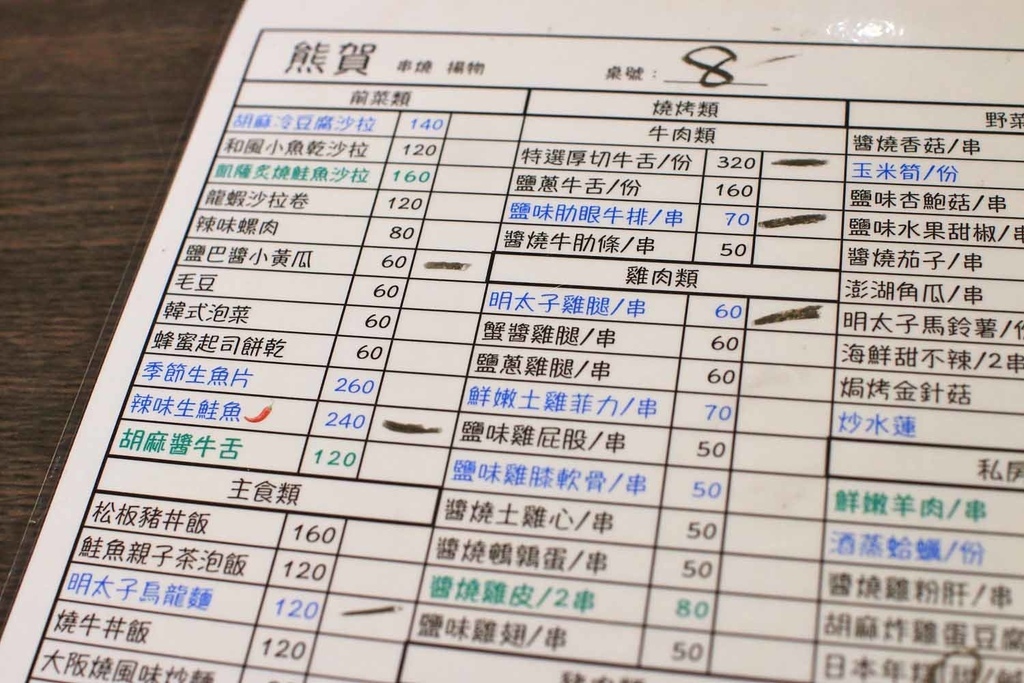 熊賀 串燒 揚物 桌號：8
前菜類
胡麻冷豆腐沙拉 140
和風小魚乾沙拉 120
凱薩炙燒鮭魚沙拉 160
龍蝦沙拉卷 120
辣味螺肉 80
鹽巴醬小黃瓜 60
毛豆 60
韓式泡菜 60
蜂蜜起司餅乾 60
季節生魚片 260
辣味生鮭魚 240
胡麻醬牛舌 120
主食類
松板豬丼飯 160
鮭魚親子茶泡飯 120
明太子烏龍麵 120
燒牛丼飯 120
大阪燒風味炒麵
燒烤類
牛肉類
特選厚切牛舌/份 320
鹽蔥牛舌/份 160
鹽味肋眼牛排/串 70
醬燒牛肋條/串 50
雞肉類
明太子雞腿/串 60
蟹醬雞腿/串 60
鹽蔥雞腿/串 60
鮮嫩土雞菲力/串 70
鹽味雞屁股/串 50
鹽味雞膝軟骨/串 50
醬燒土雞心/串 50
醬燒鵪鶉蛋/串 50
醬燒雞皮/2串 80
鹽味雞翅/串 50
豬肉類
野菜
醬燒香菇/串
玉米筍/份
鹽味杏鮑菇/串
鹽味水果甜椒/串
醬燒茄子/串
澎湖角瓜/串
明太子馬鈴薯/份
海鮮甜不辣/2串
焗烤金針菇
炒水蓮
私房
鮮嫩羊肉/串
酒蒸蛤蠣/份
醬燒雞粉肝/串
胡麻炸雞蛋豆腐
日本年糕